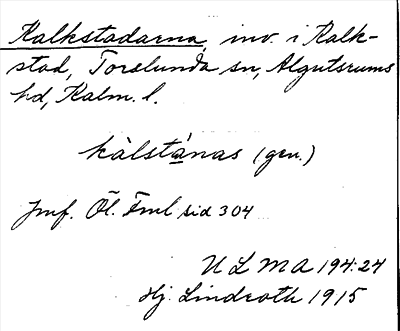 Kalkstadarna, inv. i Kalk-
stad, Torslunda sn, Algutsrums
hd, Kalm. l.
kàlstánas (gen.)
Jmf. Öl. Fml sid 304
ULMA 194:24
Hj. Lindroth 1915